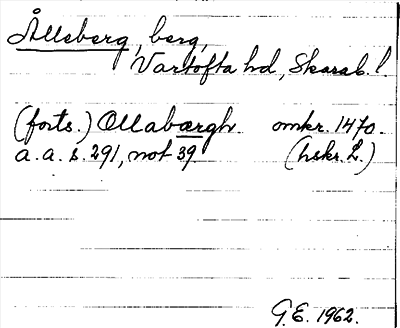 Ålleberg, berg,
Vartofta hd, Skarab. l.
(forts.) Ollabærgh omkr. 1470.
a. a. s. 291, not 39 (hskr. L.)
G.E. 1962.